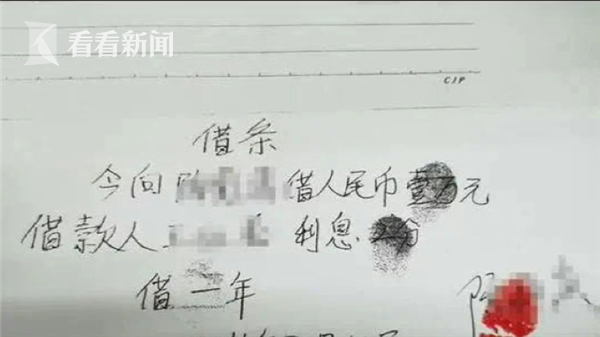 看看新闻
CIP
借条
今向 借人民币壹万元
借款人 利息2分
借一年